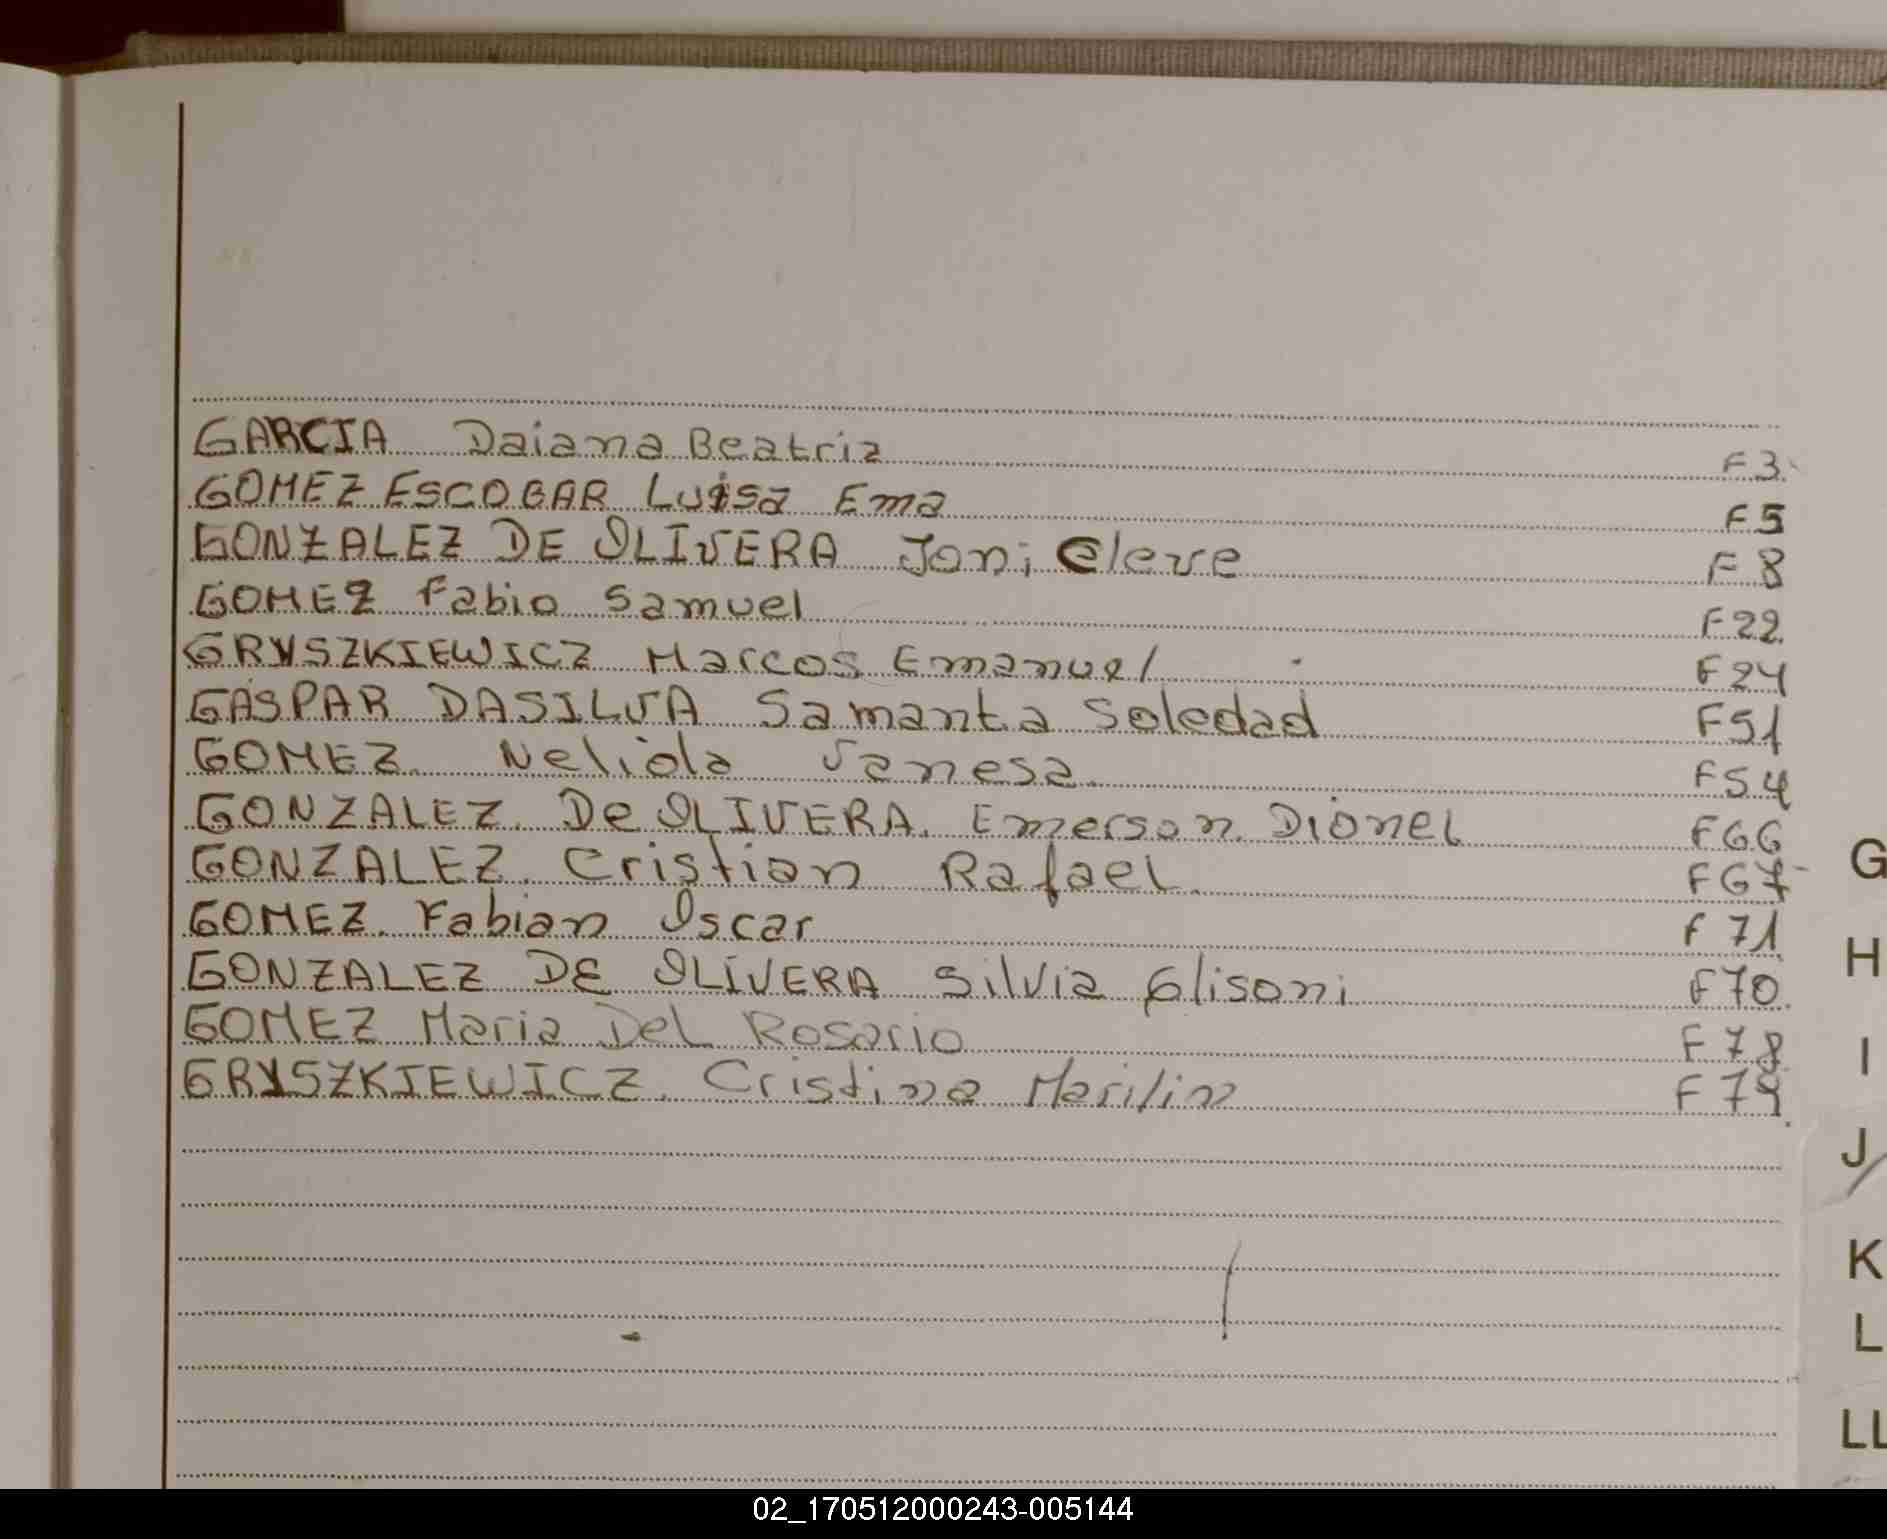 GARCIA Daiana Beatriz F3
GOMEZ ESCOBAR Luisa Ema F5
GONZALEZ DE OLIVERA Joni Cleve F8
GOMEZ Fabio Samuel F22
GRYSZKIEWICZ Marcos Emanuel F24
GASPAR DASILVA Samanta Soledad F51
GOMEZ Nelida Vanesa F54
GONZALEZ De OLIVERA Emerson Dionel F66
GONZALEZ Cristian Rafael F67
GOMEZ Fabian Oscar F71
GONZALEZ DE OLIVERA Silvia Glisoni F70
GOMEZ Maria Del Rosario F78
GRYSZKIEWICZ Cristina Marilin F79
G
H
I
J
K
L
LL
02_170512000243-005144